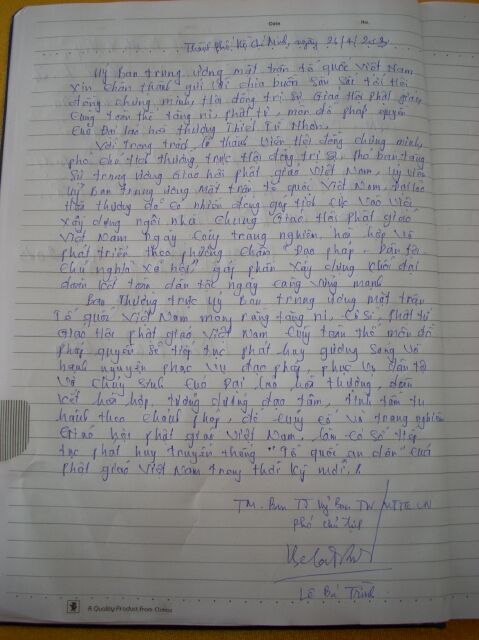 Date No.
Thành phố Hồ Chí Minh, ngày
Uỷ ban trung ương mặt trận tổ quốc Việt Nam
xin chân thành gửi lời chia buồn sâu sắc tới Hội
đồng chứng minh, Hội đồng trị sự Giáo hội phật giáo,
cùng toàn thể tăng ni, phật tử, môn đồ pháp quyến
của Đại lão hoà thượng Thích Từ Nhơn.
Với trọng trách là thành viên Hội đồng chứng minh,
phó chủ tịch thường trực Hội đồng trị sự, trưởng ban tăng
sự trung ương Giáo hội phật giáo Việt Nam, uỷ viên
uỷ ban trung ương Mặt trận tổ quốc Việt Nam, Đại lão
hoà thượng đã có nhiều đóng góp tích cực vào việc
xây dựng ngôi nhà chung Giáo hội phật giáo
Việt Nam ngày càng trang nghiêm, hoà hợp và
phát triển theo phương châm "Đạo pháp - Dân tộc
chủ nghĩa xã hội", góp phần xây dựng khối đại
đoàn kết toàn dân tộc ngày càng vững mạnh
Ban Thường trực uỷ ban trung ương mặt trận
tổ quốc Việt Nam mong rằng tăng ni, cư sĩ, phật tử
Giáo hội phật giáo Việt Nam cùng toàn thể môn đồ
pháp quyến sẽ tiếp tục phát huy gương sáng và
hạnh nguyện phục vụ đạo pháp, phục vụ dân tộc
và chúng sinh của Đại lão hoà thượng, đoàn
kết hoà hợp, tương dưỡng đạo tâm, tinh tấn tu
hành theo chánh pháp, để củng cố và trang nghiêm
Giáo hội phật giáo Việt Nam, làm cơ sở tiếp
tục phát huy truyền thống "Hộ quốc an dân" của
phật giáo Việt Nam trong thời kỳ mới.
TM. Ban TT Uỷ Ban TW MTTQ VN
phó chủ tịch
Lê Bá Trình
A Quality Product from